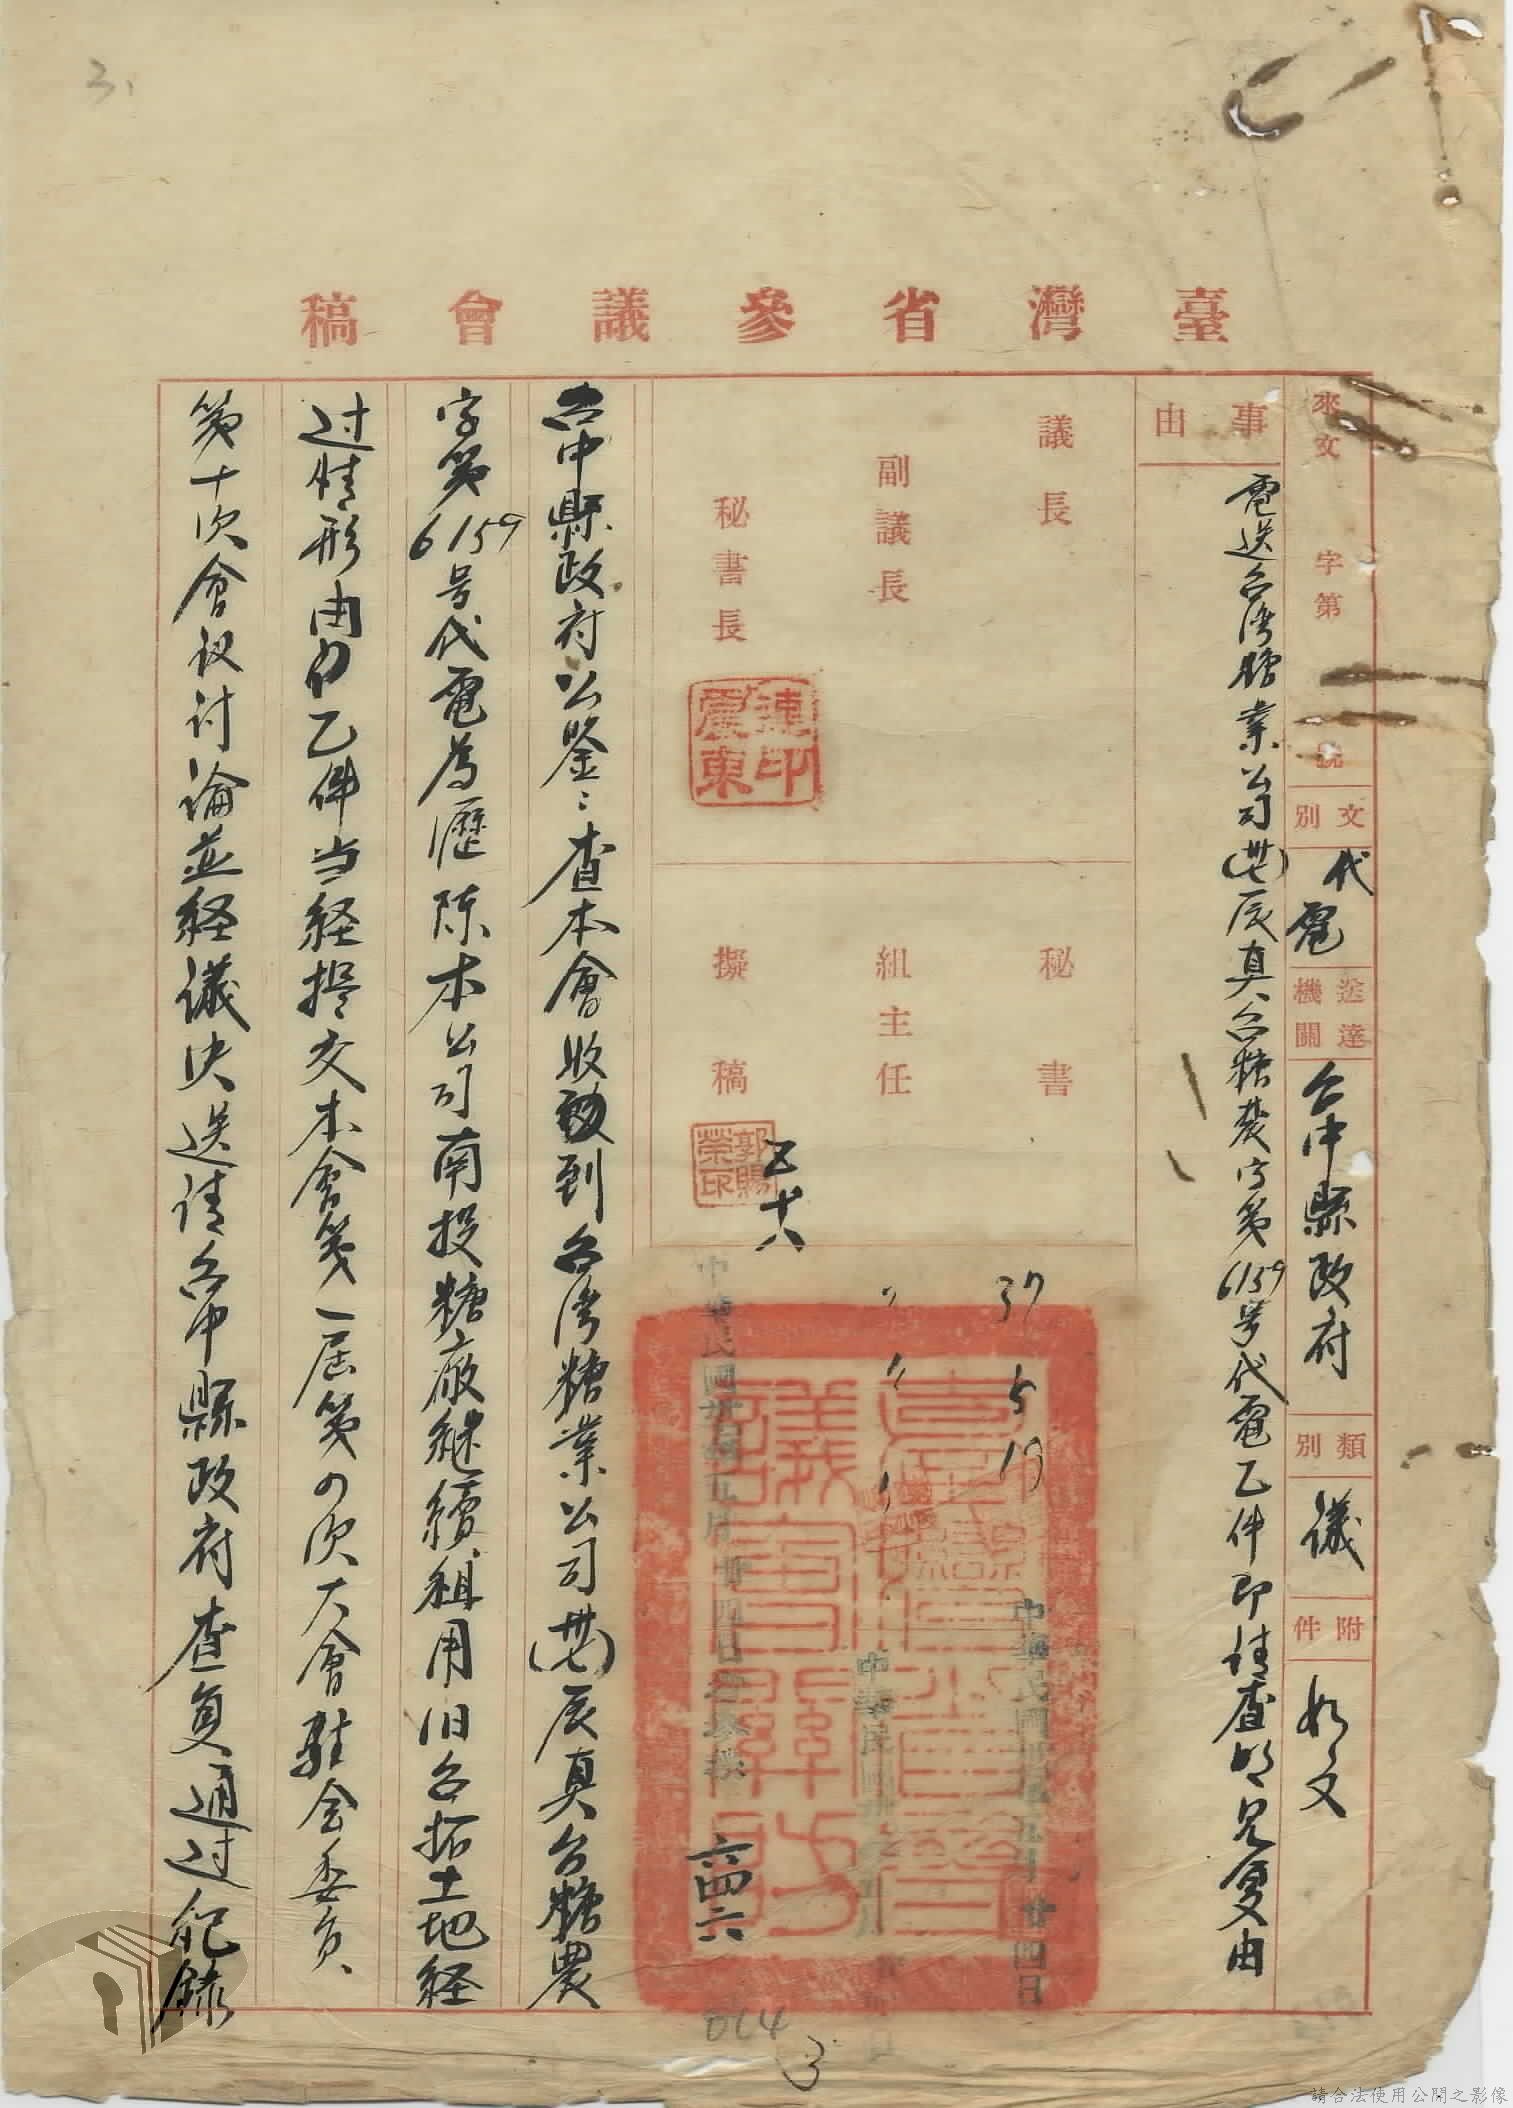 3、
臺灣省參議會稿
來文 字第 號
文別 代電
送達機關 台中縣政府
類別 議
附件 如文
事由
電送台湾糖業公司(卅七)辰真台糖農字第6159号代電乙件即请查明见复由
議長
副議長
秘書長
連震東印
秘書
組主任
擬稿
郭賜榮印
五十八
37 5 19
中華民國卅七年五月廿四日
六四六
台中縣政府公鑒：查本會收到台湾糖業公司(卅七)辰真台糖農
字第6159号代電為瀝陈本公司南投糖廠継續租用旧台拓土地経
过情形由乙件当経提交本會第一屆第四次大會駐会委員
第十次會议讨論並経議决送请台中縣政府查复通过紀録
014
3
請合法使用公開之影像